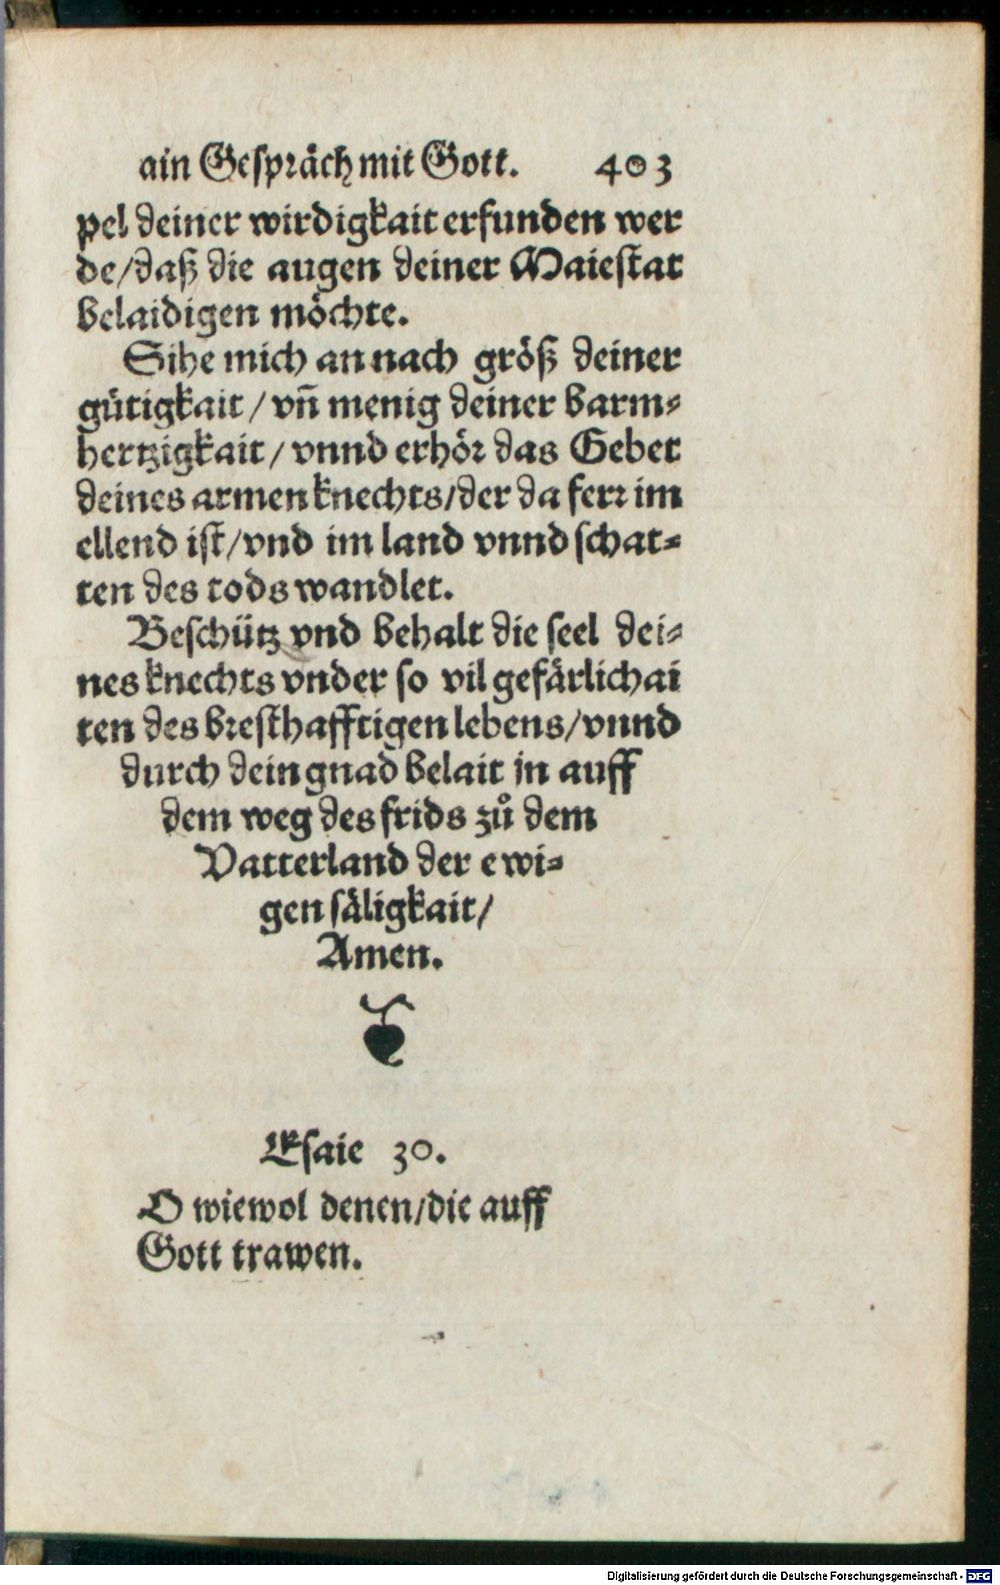 ain Gespräch mit Gott. 403
pel deiner wirdigkait erfunden wer
de/daß die augen deiner Maiestat
belaidigen möchte.
Sihe mich an nach größ deiner
gütigkait / vñ menig deiner barm-
hertzigkait / vnnd erhör das Gebet
deines armen knechts/der da ferr im
ellend ist/vnd im land vnnd schat-
ten des tods wandlet.
Beschütz vnd behalt die seel dei-
nes knechts vnder so vil gefärlichai
ten des bresthafftigen lebens/vnnd
durch dein gnad belait in auff
dem weg des frids zů dem
Vatterland der ewi-
gen säligkait/
Amen.
Esaie 30.
O wiewol denen/die auff
Gott trawen.
Digitalisierung gefördert durch die Deutsche Forschungsgemeinschaft - DFG